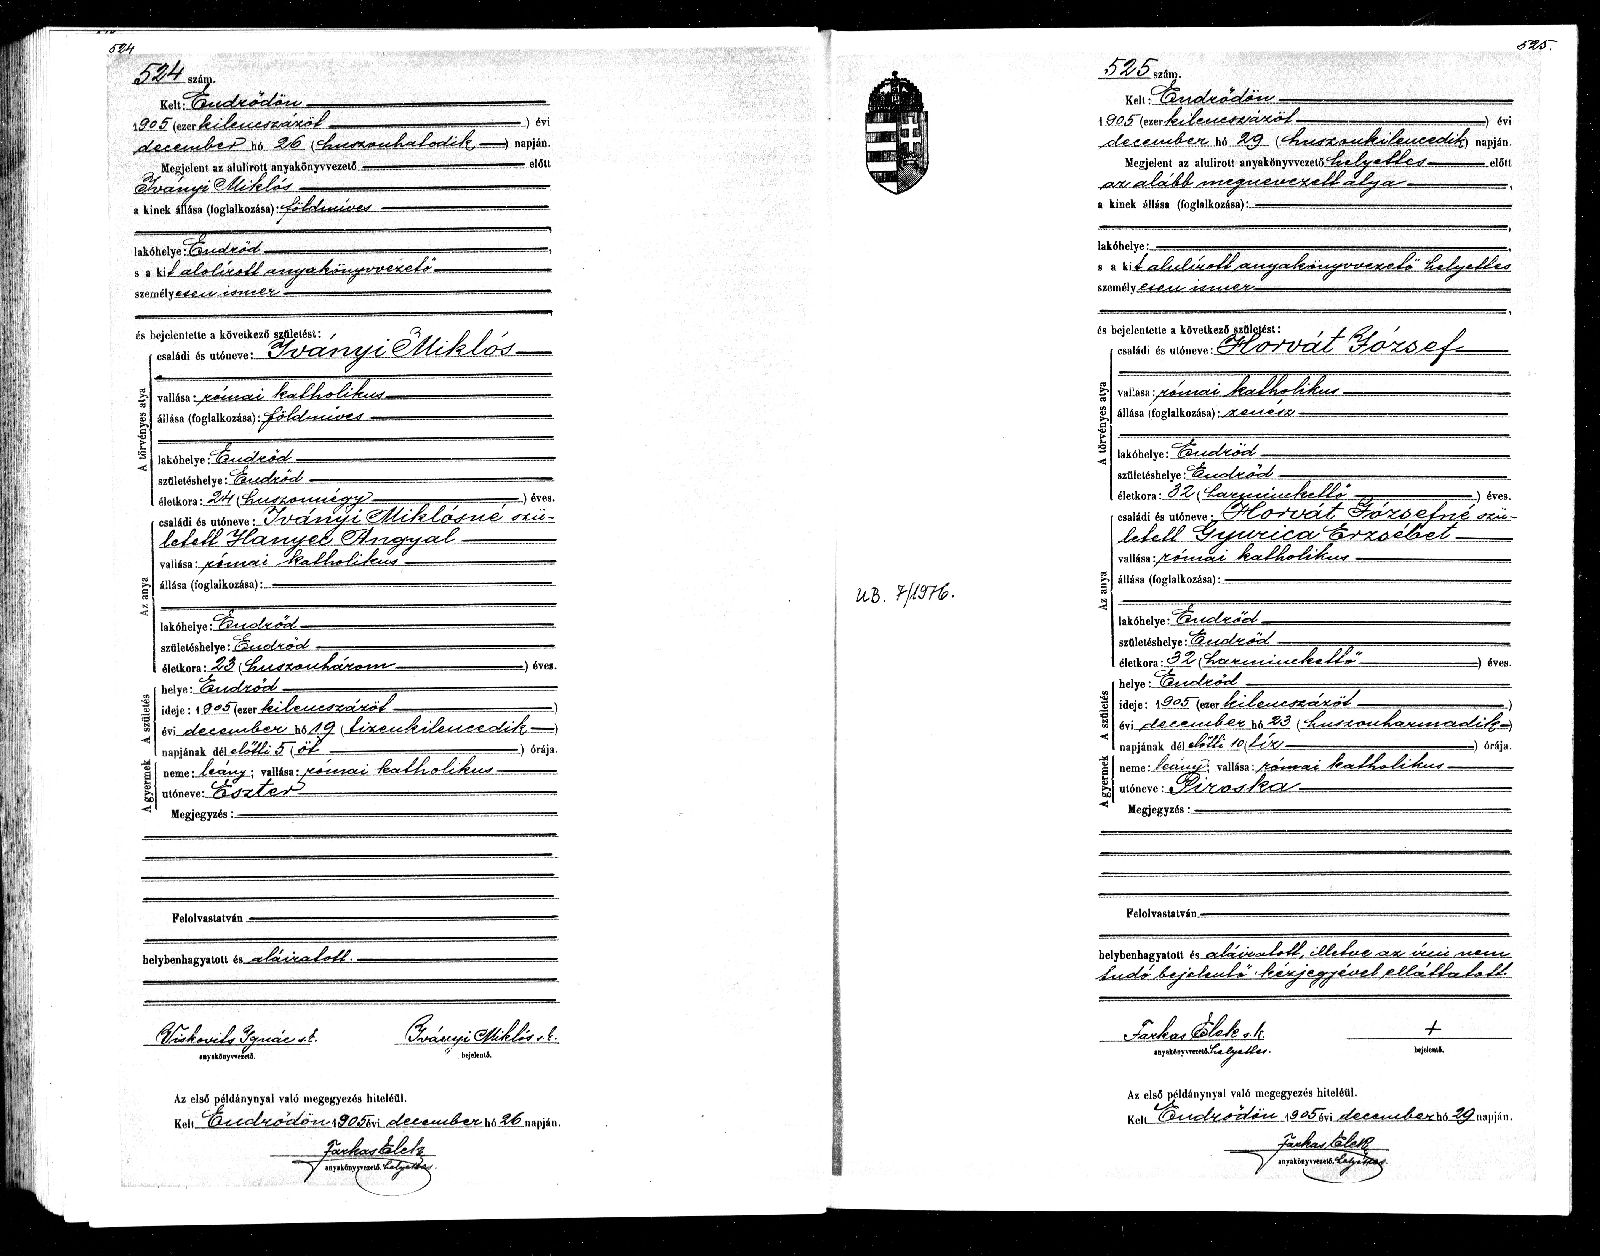 524
524 szám.
Kelt: Endrődön
1905 (ezer kilenczszázöt ) évi
december hó 26 (huszonhatodik ) napján.
Megjelent az alulirott anyakönyvvezető előtt
Iványi Miklós
a kinek állása (foglalkozása): földmives
lakóhelye: Endrőd
s a kit alolírott anyakönyvvezető
személyesen ismer
és bejelentette a következő születést:
A törvényes atya
családi és utóneve: Iványi Miklós
vallása: római katholikus
állása (foglalkozása): földmíves
lakóhelye: Endrőd
születéshelye: Endrőd
életkora: 24 (huszonnégy ) éves.
Az anya
családi és utóneve: Iványi Miklósné szü-
letett Hanyec Angyal
vallása: római katholikus
állása (foglalkozása):
lakóhelye: Endrőd
születéshelye: Endrőd
életkora: 23 (huszonhárom ) éves.
A születés
helye: Endrőd
ideje: 1905 (ezer kilenczszázöt )
évi december hó 19 (tizenkilencedik )
napjának dél előtti 5 (öt ) órája.
A gyermek
neme: leány; vallása: római katholikus
utóneve: Eszter
Megjegyzés:
Felolvastatván
helybenhagyatott és aláiratott.
Viskovits Ignác s.k. Iványi Miklós s.k.
anyakönyvvezető. bejelentő.
Az első példánynyal való megegyezés hiteléül.
Kelt Endrődön 1905 évi december hó 26 napján.
Farkas Elek
anyakönyvvezető. helyettes.
525.
525 szám.
Kelt: Endrődön
1905 (ezer kilenczszázöt ) évi
december hó 29 (huszonkilencedik) napján.
Megjelent az alulirott anyakönyvvezető helyettes előtt
az alább megnevezett atya
a kinek állása (foglalkozása):
lakóhelye:
s a kit alulírott anyakönyvvezető helyettes
személyesen ismer
és bejelentette a következő születést:
A törvényes atya
családi és utóneve: Horvát József
vallása: római katholikus
állása (foglalkozása): zenész
lakóhelye: Endrőd
születéshelye: Endrőd
életkora: 32 (harminckettő ) éves.
Az anya
családi és utóneve: Horvát Józsefné szü-
letett Gyurica Erzsébet
vallása: római katholikus
állása (foglalkozása):
lakóhelye: Endrőd
születéshelye: Endrőd
életkora: 32 (harminckettő ) éves.
UB. 7/1976.
A születés
helye: Endrőd
ideje: 1905 (ezer kilenczszázöt )
évi december hó 23 (huszonharmadik )
napjának dél előtti 10 (tíz ) órája.
A gyermek
neme: leány; vallása: római katholikus
utóneve: Piroska
Megjegyzés:
Felolvastatván
helybenhagyatott és aláiratott, illetve az írni nem
tudó bejelentő kézjegyével elláttatott
Farkas Elek s.k. +
anyakönyvvezető. helyettes. bejelentő.
Az első példánynyal való megegyezés hiteléül.
Kelt Endrődön 1905 évi december hó 29 napján.
Farkas Elek
anyakönyvvezető. helyettes.